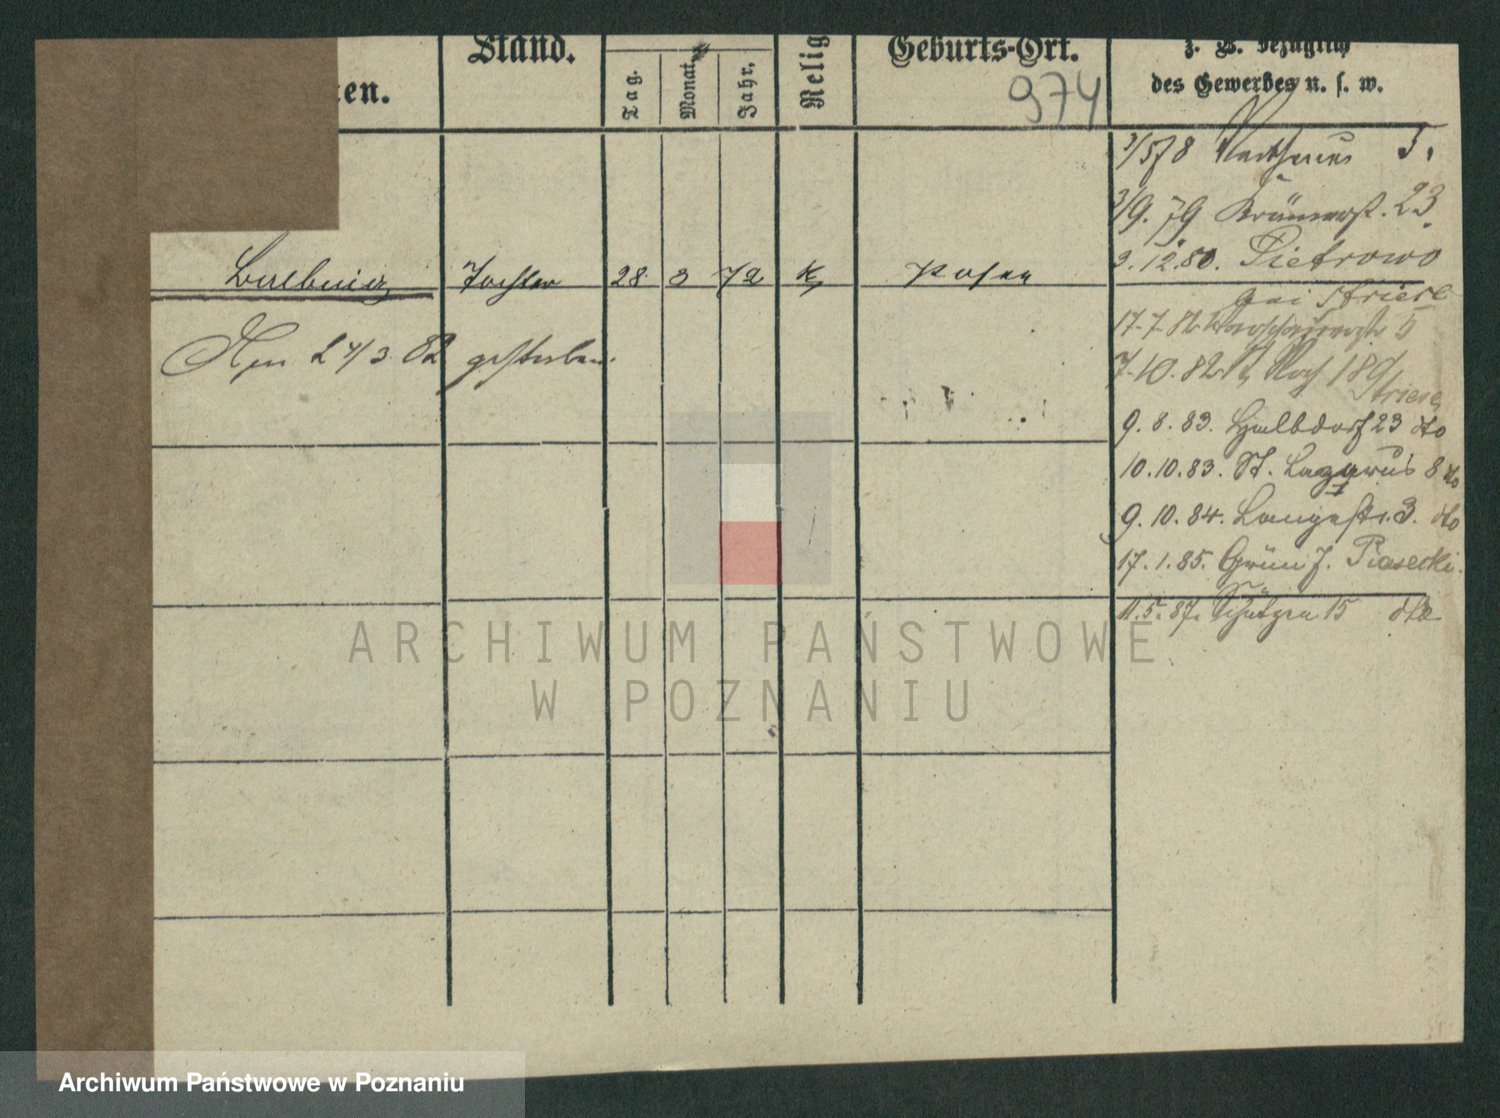 Stand.
Tag.
Monat.
Jahr.
Relig
Geburts-Ort.
z. B. bezüglich
des Gewerbes u. s. w.
en.
974
3/5 78 5.
3/9. 79 Krämerst. 23.
3. 12. 80. Pietrowo
Balbina Tochter 28 3 72 K Posen
bei Striese
17.7.82 5
Am 24/3 82 gestorben.
7.10.82 St Roch 189
Striese
9. 8. 83. Halbdorf 23 dto
10.10.83. St. Lazarus 8 dto
9. 10. 84. Langestr. 3. dto
17. 1. 85. Grün 7. Piasecki.
11. 5. 87. Schützen 15 dto
ARCHIWUM PAŃSTWOWE
W POZNANIU
Archiwum Państwowe w Poznaniu